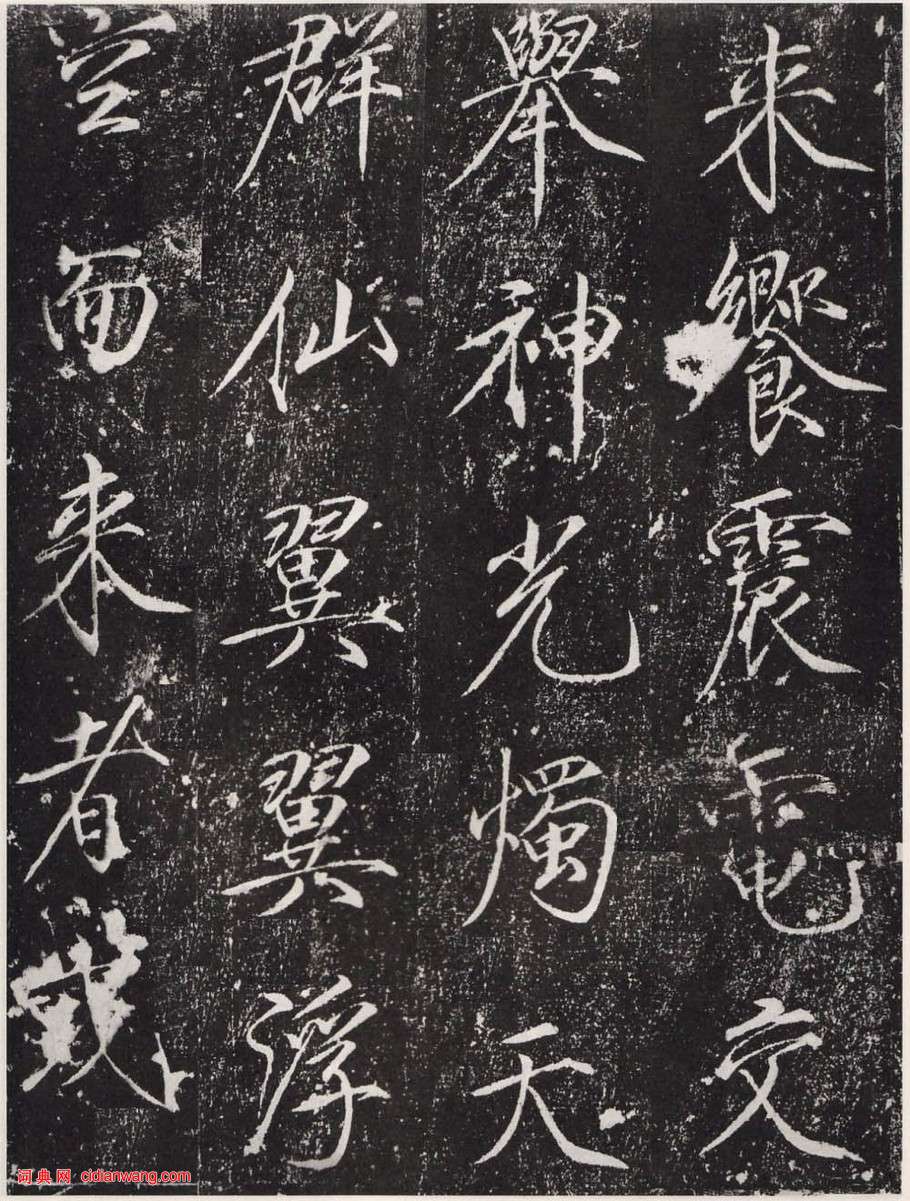 来饗震電交
舉神光燭天
群仙翼翼浮
空而来者
词典网 cidianwang.com